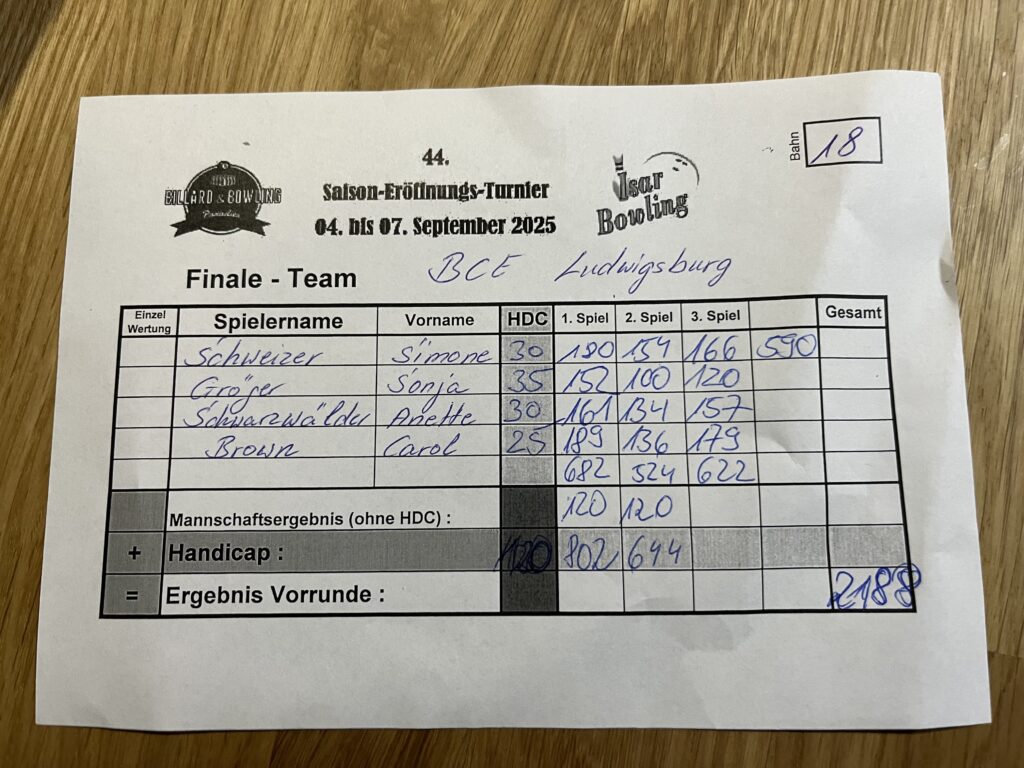 Bahn 18
44.
BILLARD & BOWLING
Paradies
Saison-Eröffnungs-Turnier
04. bis 07. September 2025
Isar
Bowling
Finale - Team BCE Ludwigsburg
Einzel Wertung Spielername Vorname HDC 1. Spiel 2. Spiel 3. Spiel Gesamt
Schweizer Simone 30 180 154 166 590
Sonja 35 152 100 120
Schwarzwälder Anette 30 161 134 157
Brown Carol 25 189 136 179
682 524 622
Mannschaftsergebnis (ohne HDC) : 120 120
+ Handicap : 120 802 644
= Ergebnis Vorrunde : 2188